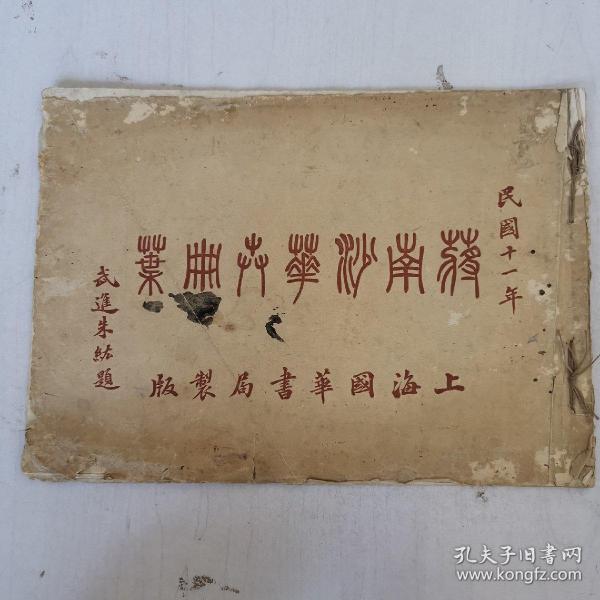 民國十一年
蔣南沙華卉冊葉
武進朱紘題
上海國華書局製版
孔夫子旧书网
www.kongfz.com